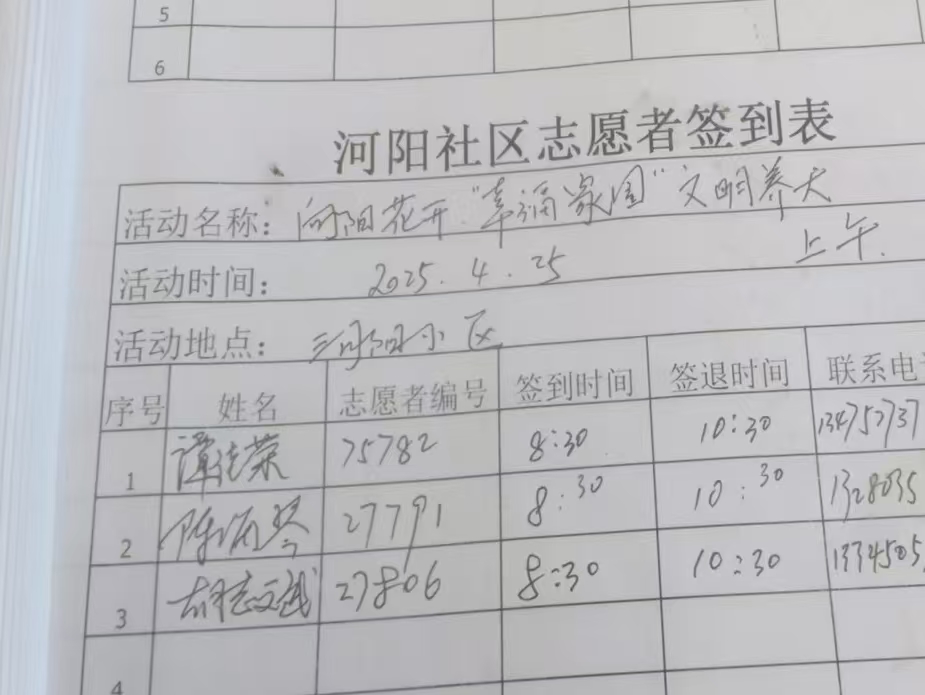 5
6
河阳社区志愿者签到表
活动名称：向阳花开"幸福家园"文明养犬
活动时间：2025.4.25 上午.
活动地点：河阳小区
序号 姓名 志愿者编号 签到时间 签退时间 联系电
1 75782 8:30 10:30 134752737
2 陈 琴 27791 8:30 10:30 1328035
3 27806 8:30 10:30 1334505
4